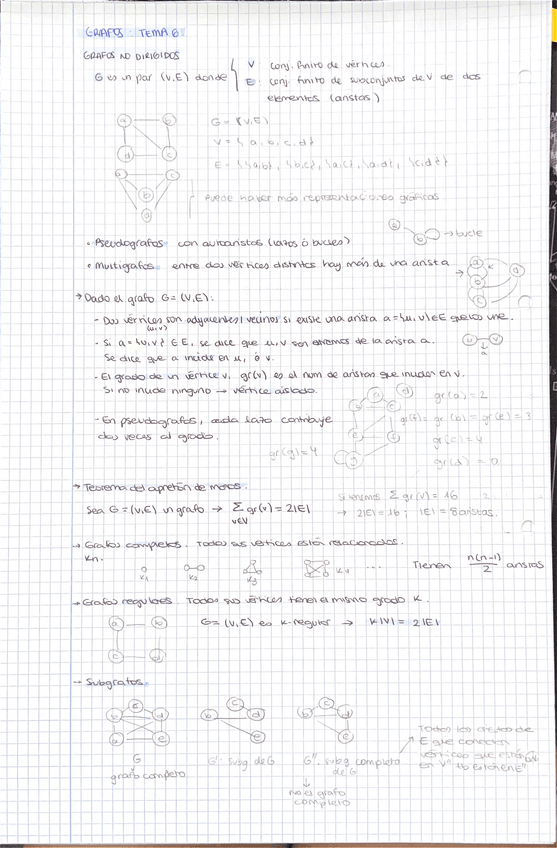 GRAFOS · TEMA 6
GRAFOS NO DIRIGIDOS
G es un par (V,E) donde
V conj. finito de vértices.
E: conj. finito de subconjuntos de V de dos
elementos (aristas)
a b
d c
G = (V,E)
V = { a, c, d }
E = { {a,b}, {b,c}, {a,c}, {a,d}, {c,d} }
a c
b
d
Puede haber más representaciones gráficas
a b → bucle
• Pseudografos con autoaristas (lazos ó bucles)
• Multigrafos entre dos vértices distintos hay más de una arista
→ Dado el grafo G = (V,E):
- Dos vértices son adyacentes/vecinos si existe una arista a={u,v}∈E que los une.
(u,v)
- Si a = {u,v} ∈ E, se dice que u,v son extremos de la arista a.
Se dice que a incide en u, ó v.
u v
a
- El grado de un vértice v, gr(v) es el num de aristas que inciden en v.
Si no incide ninguno → vértice aislado.
gr(a) = 2
- En pseudografos, cada lazo contribuye
dos veces al grado.
gr(f) = gr(b) = gr(e) = 3
gr(c) = 4
gr(g) = 4
gr(d) = 0
→ Teorema del apretón de manos.
Sea G = (V,E) un grafo → Σ gr(v) = 2|E|
v∈V
Si tenemos Σ gr(v) = 16
→ 2|E| = 16 ; |E| = 8 aristas.
→ Grafos completos. Todos sus vértices están relacionados.
Kn.
K1 K2 K3 K4 ...
Tienen n(n-1)/2 aristas
→ Grafos regulares. Todos sus vértices tienen el mismo grado K.
a b
c d
G = (V,E) es K-regular → K|V| = 2|E|
→ Subgrafos.
G
grafo completo
G' subg de G
G'' subg completo
de G
no el grafo
completo
Todos los de
E que conectan
vértices que están
en V''